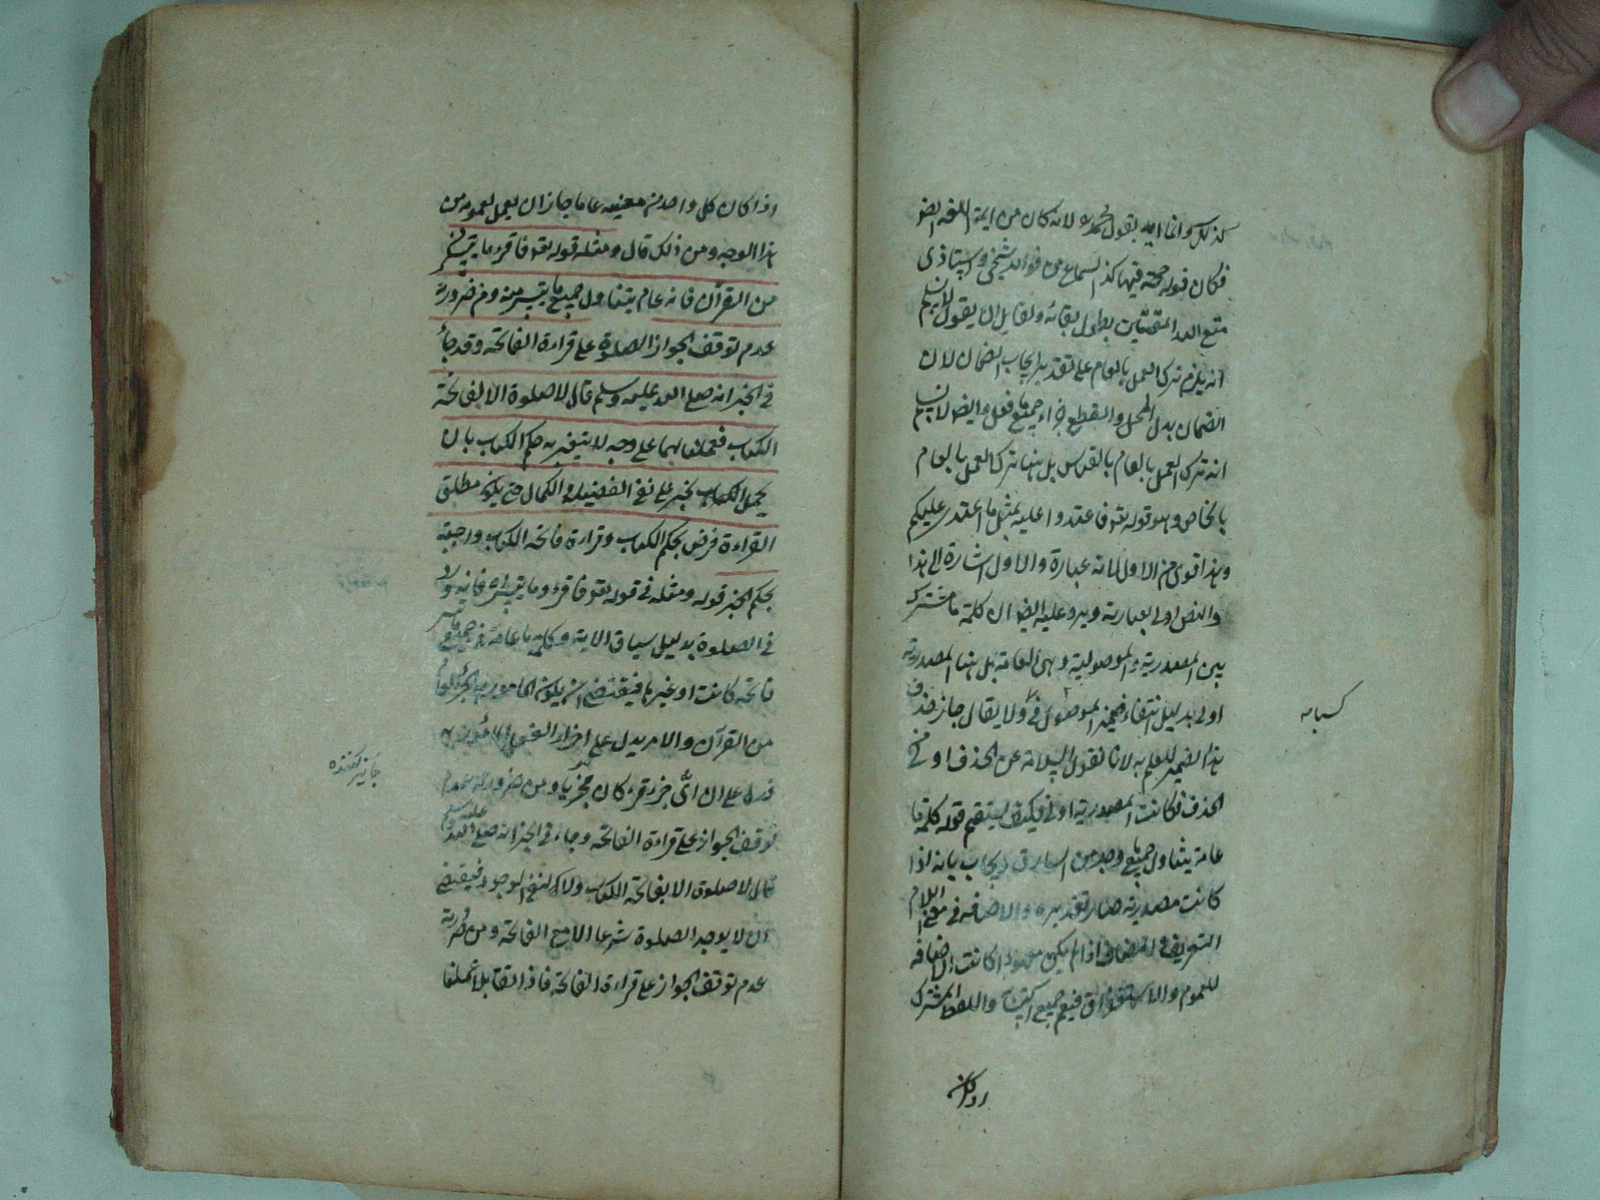 كذلك وانما ايد بقول محمد لانه كان من ايمة اللغة ايضا
فكان قوله حجة فيها كذا السماع من فوائد شيخى واستاذى
متع الله المقتبسين بطول بقائه ولقايل ان يقول لا نسلم
انه يلزم ترك العمل بالعام على تقدير ايجاب الضمان لان
الضمان بدل المحل والقطع جزاء جميع ما فعل وايضا لا نسلم
انه ترك العمل بالعام بالقياس بل هنا ترك العمل بالعام
بالخاص وهو قوله تعو فاعتدوا عليه بمثل ما اعتدى عليكم
وهذا اقوى من الاول لانه عبارة والاول اشارة الى هذا
والنص اولى بعبارته ويرد عليه ايضا ان كلمة ما مشترك
بين المصدرية والموصولية وهى العامة بل هنا المصدرية
اولى بدليل انتفاء ضمير الموصول فى ولا يقال جاز حذف
هذا الضمير للعلم به لانا نقول السلامة عن الحذف اولى من
الحذف فكانت المصدرية اولى فكيف يستقيم قوله كلمة ما
عامة يتناول جميع ما وجد من السارق ويجاب بانه اذا
كانت مصدرية صار تقديره والاضافة فى معنى اللام
التعريف فى المضاف اذا لم يكن معهودا كانت الاضافة
للعموم والاستغراق فيعم جميع واللفظ المشترك
كسبا مه
اذا كان
اذا كان كل واحد من معنييه عاما جاز ان يعمل بعمومه من
هذا الوجه ومن ذلك قال ومثله قوله تعو فاقرؤا ما تيسر
من القرآن فانه عام يتناول جميع ما تيسر منه ومن ضرورته
عدم توقف الجواز الصلوة على قراءة الفاتحة وقد جاء
فى الخبر انه صلى الله عليه وسلم قال لا صلوة الا بفاتحة
الكتاب فعملنا بهما على وجه لا يتغير به حكم الكتاب بان
يحمل الخبر على نفى الفضيلة الكمال حتى يكون مطلق
القراءة فرض بحكم الكتاب وقراءة فاتحة الكتاب واجبة
بحكم الخبر قوله ومثله فى قوله تعو فاقرؤا ما تيسر فانه ورد
فى الصلوة بدليل سياق الاية وكلمة ما عامة فى جميع ما تيسر
فاتحة كانت او غيرها فيقتضى ان يكون المامور به
من القرآن والامر يدل على اجزاء الفعل المأمور به
فدل على ان اى جزء قرء كان مجزيا ومن ضرورته عدم
توقف الجواز على قراءة الفاتحة وجاء فى الخبر انه صلى الله عليه وسلم
قال لا صلوة الا بفاتحة الكتاب ولا لنفى الوجود فيقتضى
ان لا يوجد الصلوة شرعا الا مع الفاتحة ومن ضرورته
عدم توقف الجواز على قراءة الفاتحة فاذا تقابلا عملنا
جايز كننده